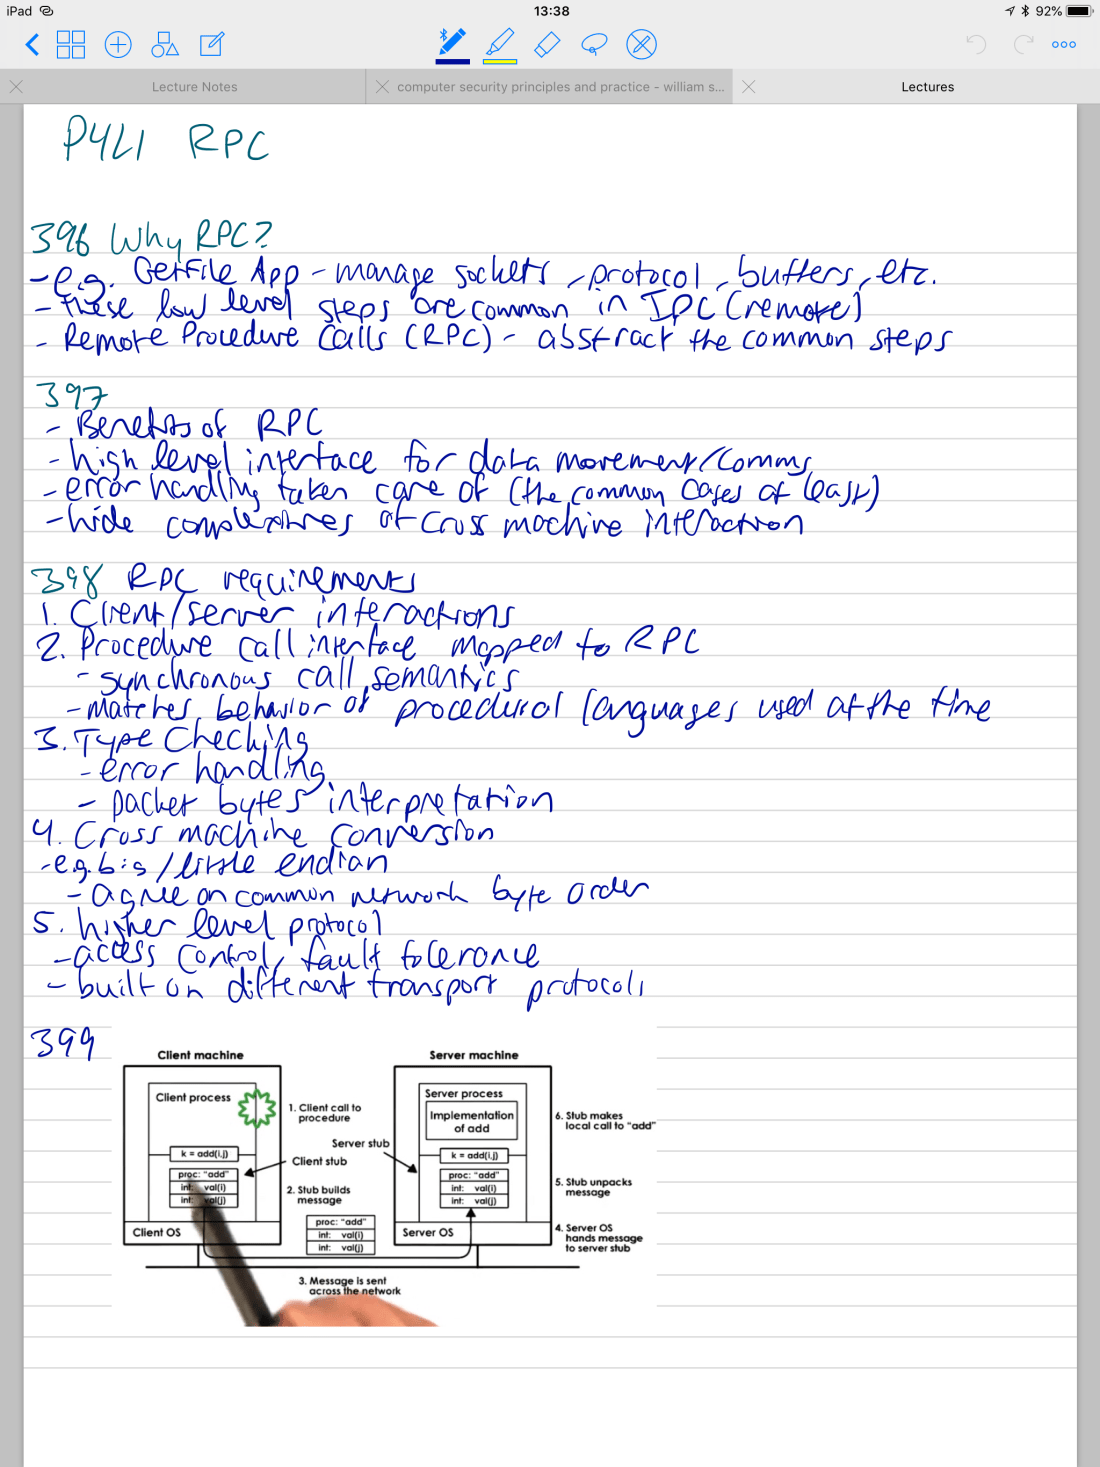 iPad
13:38
92%
Lecture Notes
computer security principles and practice - william s...
Lectures
P4L1 RPC
396 Why RPC?
- e.g. GetFile App - manage sockets, protocol, buffers, etc.
- these low level steps are common in IPC (remote)
- Remote Procedure Calls (RPC) - abstract the common steps
397
- Benefits of RPC
- high level interface for data movement/comms
- error handling taken care of (the common cases at least)
- hide complexities of cross machine interaction
398 RPC requirements
1. Client/server interactions
2. Procedure call interface mapped to RPC
- synchronous call semantics
- matches behavior of procedural languages used at the time
3. Type Checking
- error handling
- packet bytes interpretation
4. Cross machine conversion
- e.g. big/little endian
- agree on common network byte order
5. higher level protocol
- access control, fault tolerance
- built on different transport protocols
399
Client machine
Server machine
Client process
Server process
1. Client call to
procedure
Implementation
of add
6. Stub makes
local call to "add"
Server stub
k = add(i,j)
Client stub
k = add(i,j)
proc: "add"
int: val(i)
int: val(j)
2. Stub builds
message
proc: "add"
int: val(i)
int: val(j)
5. Stub unpacks
message
proc: "add"
int: val(i)
int: val(j)
Client OS
Server OS
4. Server OS
hands message
to server stub
3. Message is sent
across the network